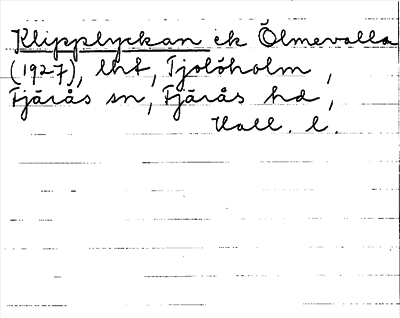 Klipplyckan ek Ölmevalla
(1927), lht, Tjolöholm,
Fjärås sn, Fjärås hd,
Hall. l.